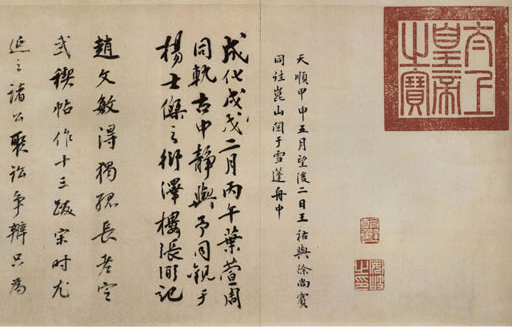 太上
皇帝
之寶
天順甲申五月望後二日王祜與徐尚賓
同往崑山閱于雪蓬舟中
成化戊戌二月丙午葉萱周
同軌古中靜與予同觀于
楊士傑之衍澤樓張淵記
趙文敏得獨孤長老定
武禊帖作十三跋宋時尤
延之諸公聚訟爭辯只為